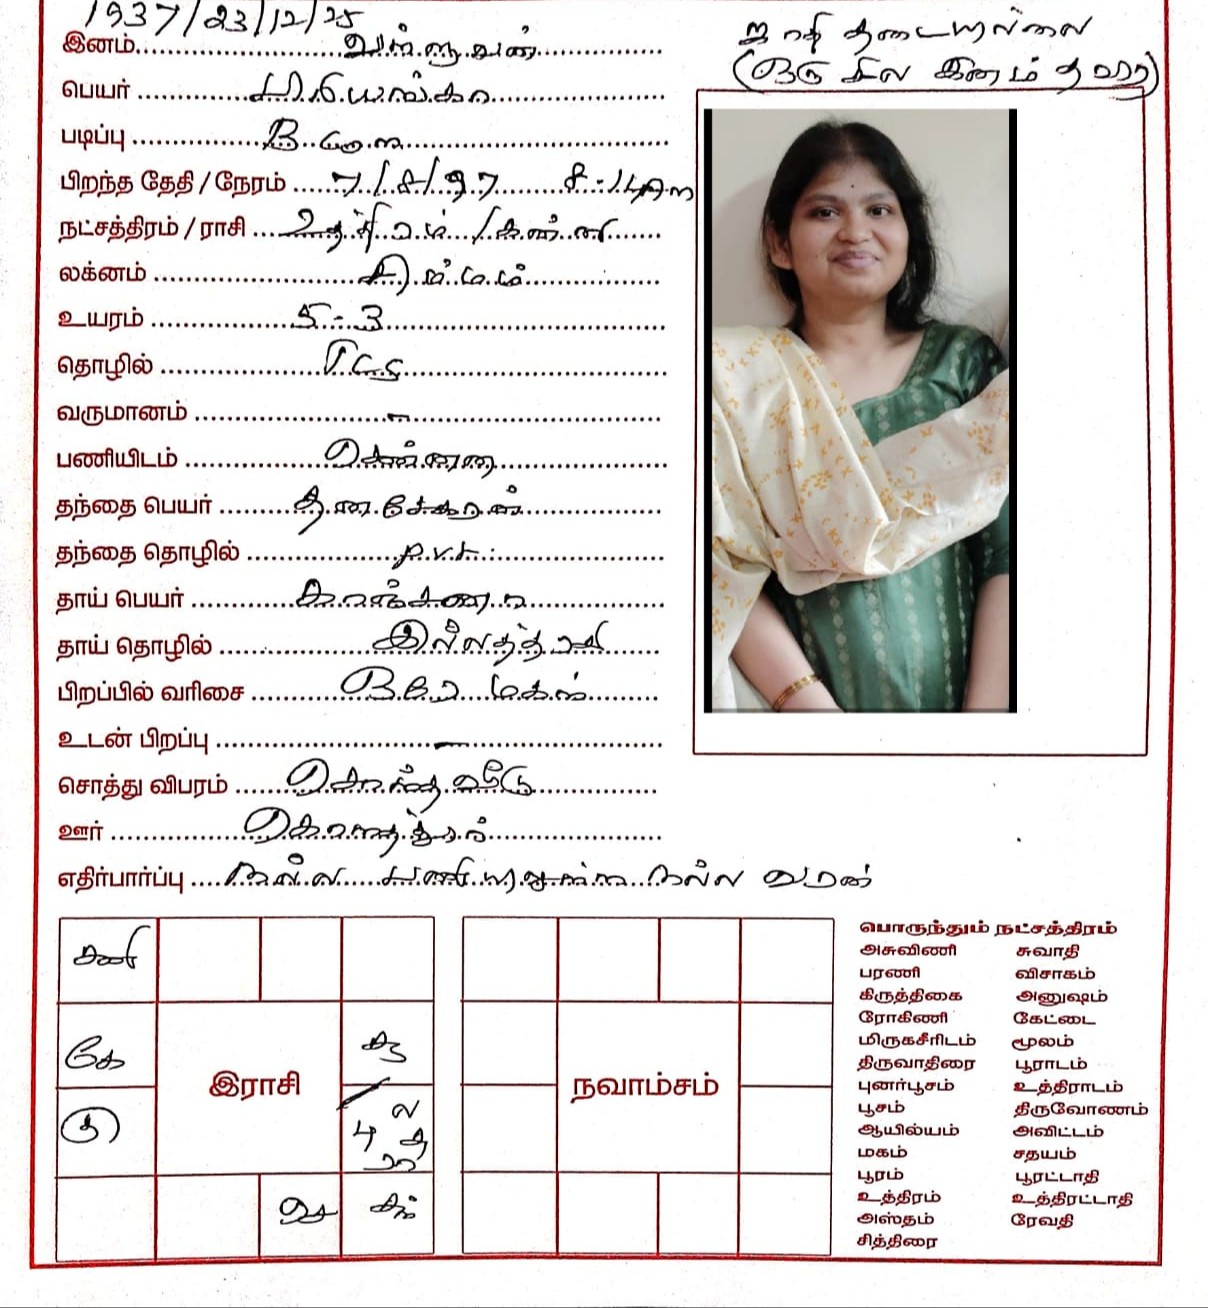 1937/23/12/25
இனம் வள்ளுவன்
ஜாதி தடையில்லை
(ஒரு சில இனம் தவிர)
பெயர் பிரியங்கா
படிப்பு B.
பிறந்த தேதி / நேரம் 7/8/97 8-14
நட்சத்திரம் / ராசி உத்திரம் / கன்னி
லக்னம் சிம்மம்
உயரம் 5-3
தொழில் TCS
வருமானம் -
பணியிடம் சென்னை
தந்தை பெயர் தனசேகரன்
தந்தை தொழில் P.v.t.
தாய் பெயர் காஞ்சனா
தாய் தொழில் இல்லத்தரசி
பிறப்பில் வரிசை ஒரே மகள்
உடன் பிறப்பு -
சொத்து விபரம் சொந்த வீடு
ஊர் கொளத்தூர்
எதிர்பார்ப்பு நல்ல பணியிலுள்ள நல்ல வரன்
சனி
கே
சூ
இராசி
நவாம்சம்
குரு
ல
பு
ரா
செ
சந்
பொருந்தும் நட்சத்திரம்
அசுவிணி சுவாதி
பரணி விசாகம்
கிருத்திகை அனுஷம்
ரோகிணி கேட்டை
மிருகசீரிடம் மூலம்
திருவாதிரை பூராடம்
புனர்பூசம் உத்திராடம்
பூசம் திருவோணம்
ஆயில்யம் அவிட்டம்
மகம் சதயம்
பூரம் பூரட்டாதி
உத்திரம் உத்திரட்டாதி
அஸ்தம் ரேவதி
சித்திரை